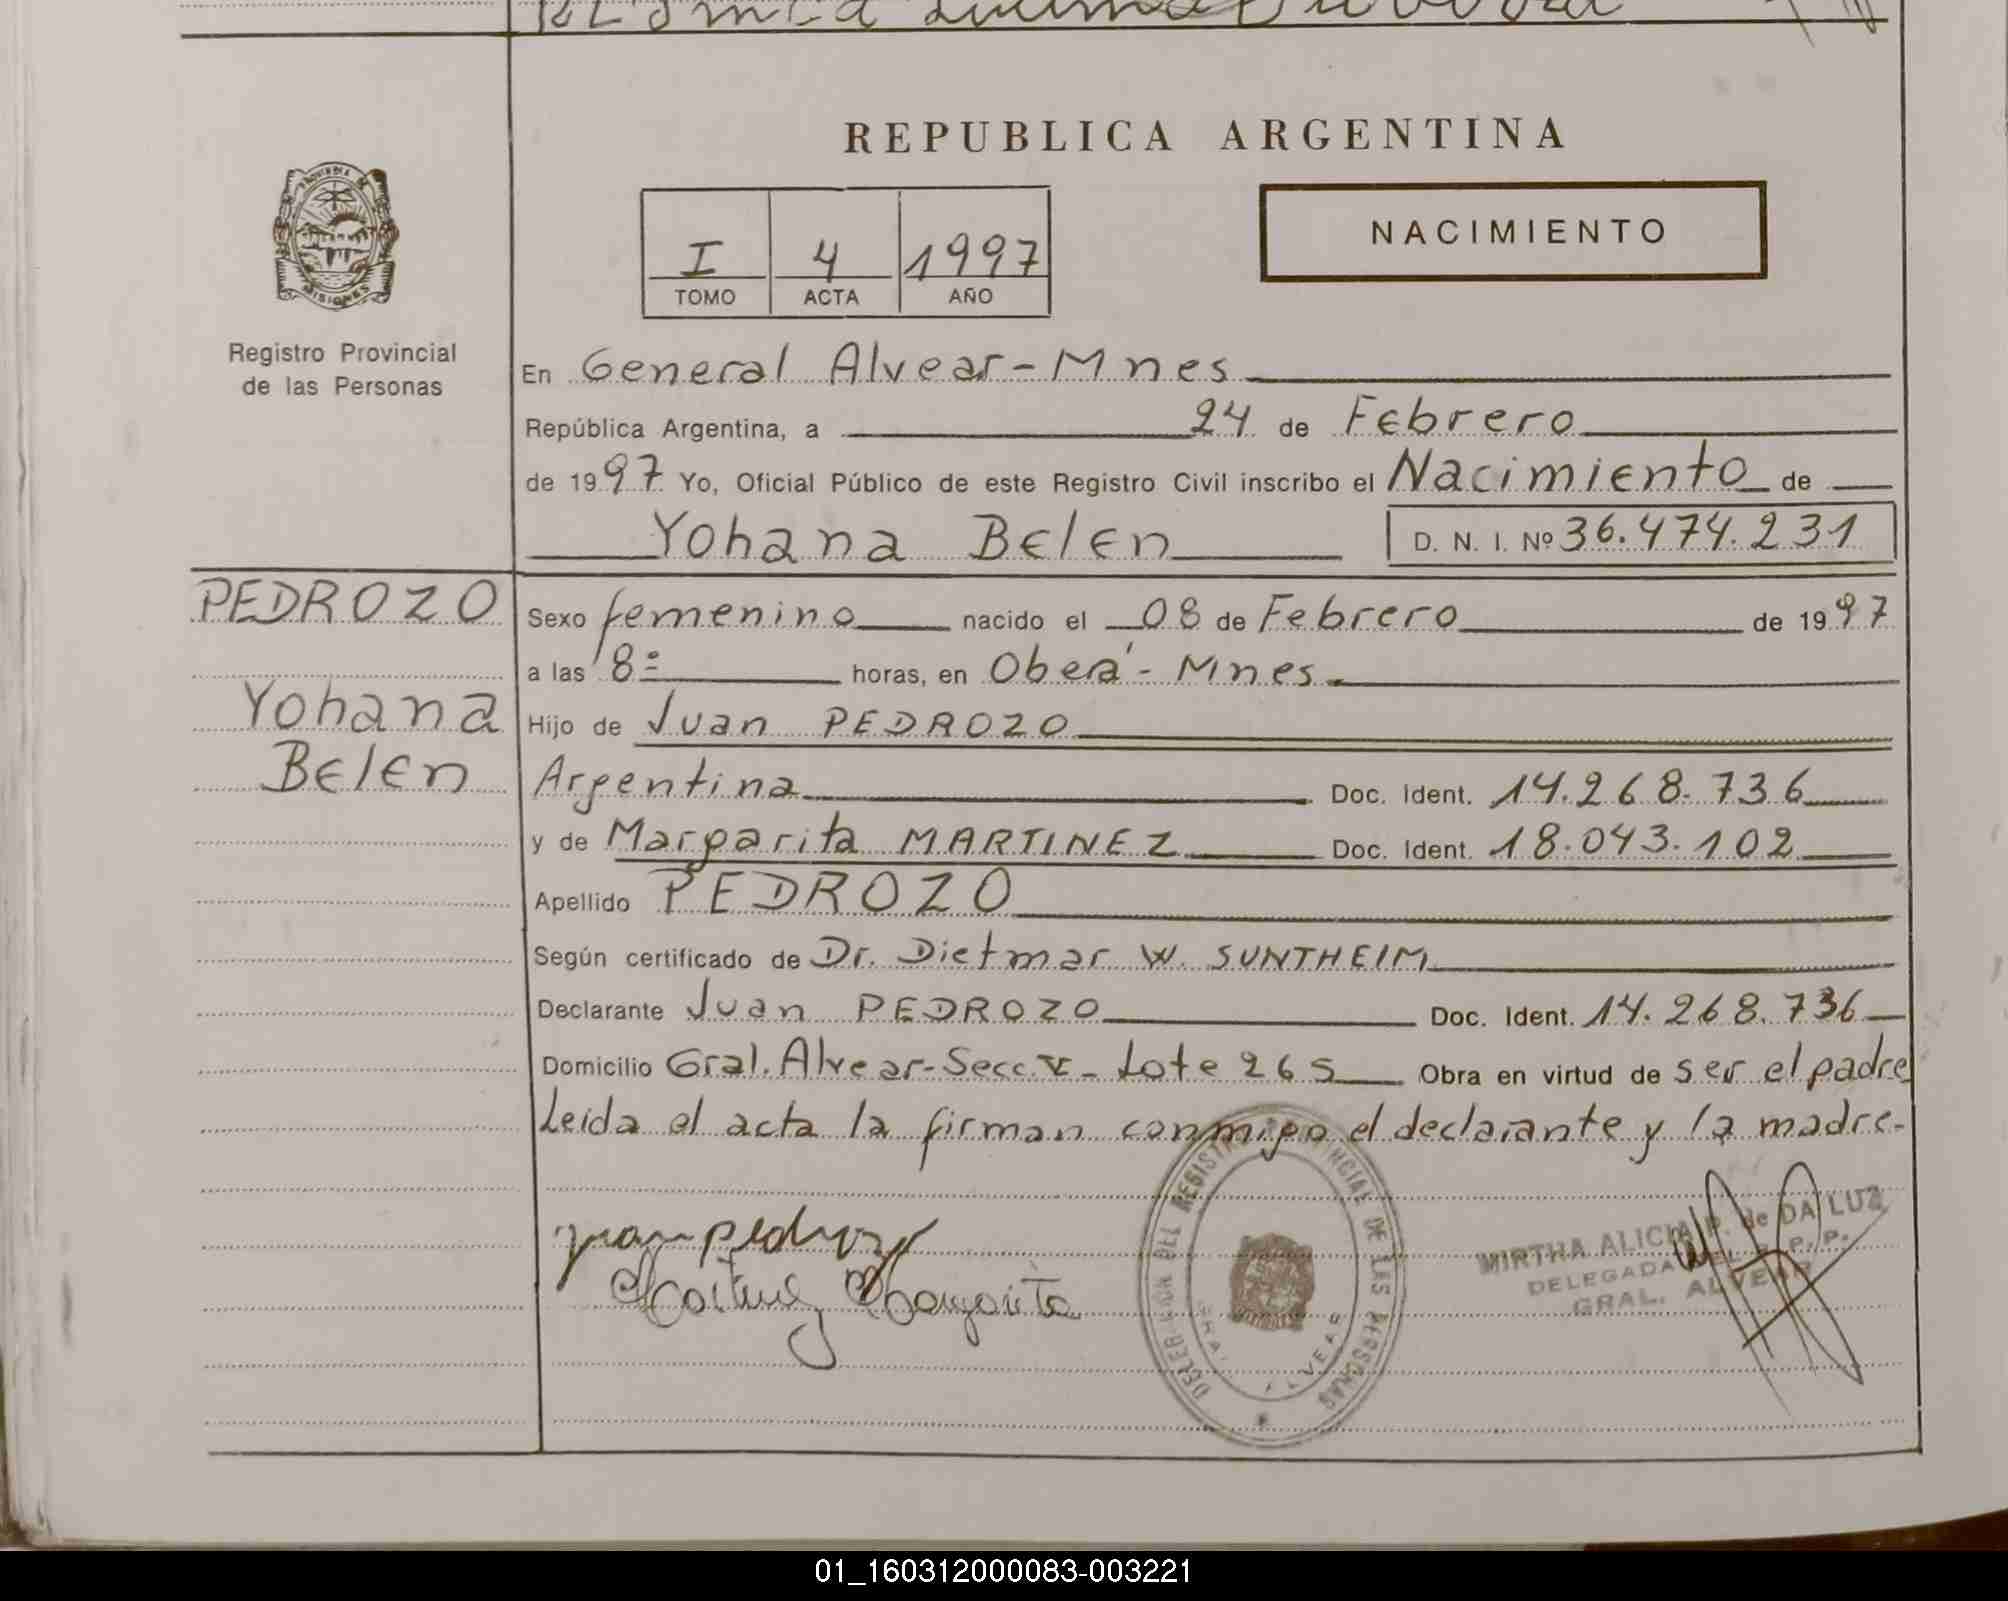 REPUBLICA ARGENTINA
PROVINCIA DE
MISIONES
Registro Provincial
de las Personas
I 4 1997
TOMO ACTA AÑO
NACIMIENTO
En General Alvear - Mnes
República Argentina, a 24 de Febrero
de 1997 Yo, Oficial Público de este Registro Civil inscribo el Nacimiento de
Yohana Belen D. N. I. Nº 36.474.231
PEDROZO
Yohana
Belen
Sexo femenino nacido el 08 de Febrero de 1997
a las 8= horas, en Oberá - Mnes
Hijo de Juan PEDROZO
Argentina Doc. Ident. 14.268.736
y de Margarita MARTINEZ Doc. Ident. 18.043.102
Apellido PEDROZO
Según certificado de Dr. Dietmar W. SUNTHEIM
Declarante Juan PEDROZO Doc. Ident. 14.268.736
Domicilio Gral. Alvear - Secc. V - Lote 265 Obra en virtud de ser el padre
Leida el acta la firman conmigo el declarante y la madre-
juan pedrozo
Martinez Margarita
DELEGACION DEL REGISTRO PROVINCIAL DE LAS PERSONAS
GRAL. ALVEAR
MIRTHA ALICIA P. de DA LUZ
DELEGADA DEL R. P. P.
GRAL. ALVEAR
01_160312000083-003221